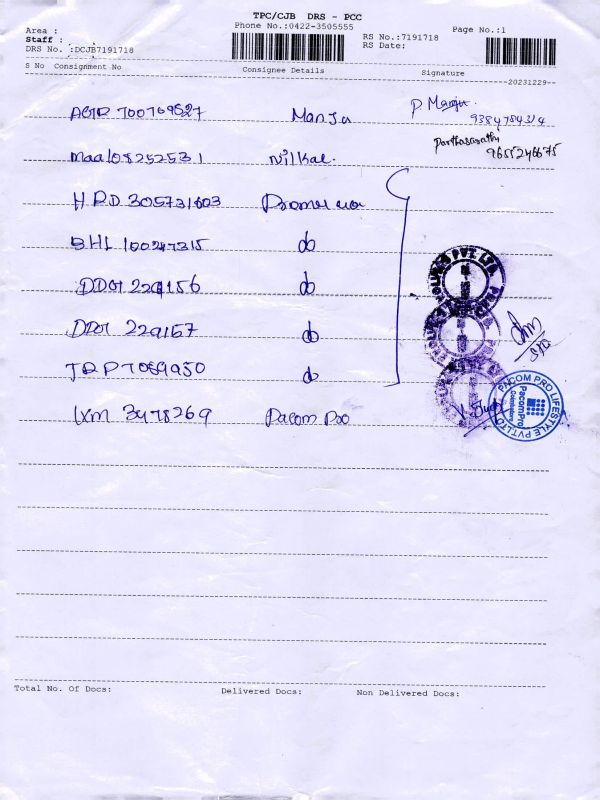 TPC/CJB DRS - PCC
Phone No.:0422-3505555
Area :
Staff :
DRS No. :DCJB7191718
RS No.:7191718
RS Date:
Page No.:1
S No Consignment No Consignee Details Signature
20231229
700709527 Manju P. Manju
9384784314
Parthasarathy
9655246675
maa108252531 Nilkal.
HPD 305731603
BHL 100247315 do
DDOT 229156 do
DDOT 229157 do
TRP 7089950 do
IXM 3478269 Pacom Pro
PACOM PRO LIFESTYLE PVT.LTD
PacomPro
Total No. Of Docs: Delivered Docs: Non Delivered Docs: